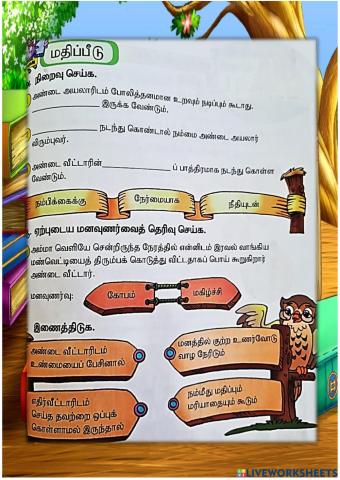 மதிப்பீடு
நிறைவு செய்க.
அண்டை அயலாரிடம் போலித்தனமான உறவும் நடிப்பும் கூடாது.
இருக்க வேண்டும்.
நடந்து கொண்டால் நம்மை அண்டை அயலார்
விரும்புவர்.
அண்டை வீட்டாரின் ப் பாத்திரமாக நடந்து கொள்ள
வேண்டும்.
நம்பிக்கைக்கு நேர்மையாக நீதியுடன்
ஏற்புடைய மனவுணர்வைத் தெரிவு செய்க.
அம்மா வெளியே சென்றிருந்த நேரத்தில் என்னிடம் இரவல் வாங்கிய
மண்வெட்டியைத் திரும்பக் கொடுத்து விட்டதாகப் பொய் கூறுகிறார்
அண்டை வீட்டார்.
மனவுணர்வு: கோபம் மகிழ்ச்சி
இணைத்திடுக.
அண்டை வீட்டாரிடம்
உண்மையைப் பேசினால்
மனத்தில் குற்ற உணர்வோடு
வாழ நேரிடும்
எதிர்வீட்டாரிடம்
செய்த தவற்றை ஒப்புக்
கொள்ளாமல் இருந்தால்
நம்மீது மதிப்பும்
மரியாதையும் கூடும்
LIVEWORKSHEETS